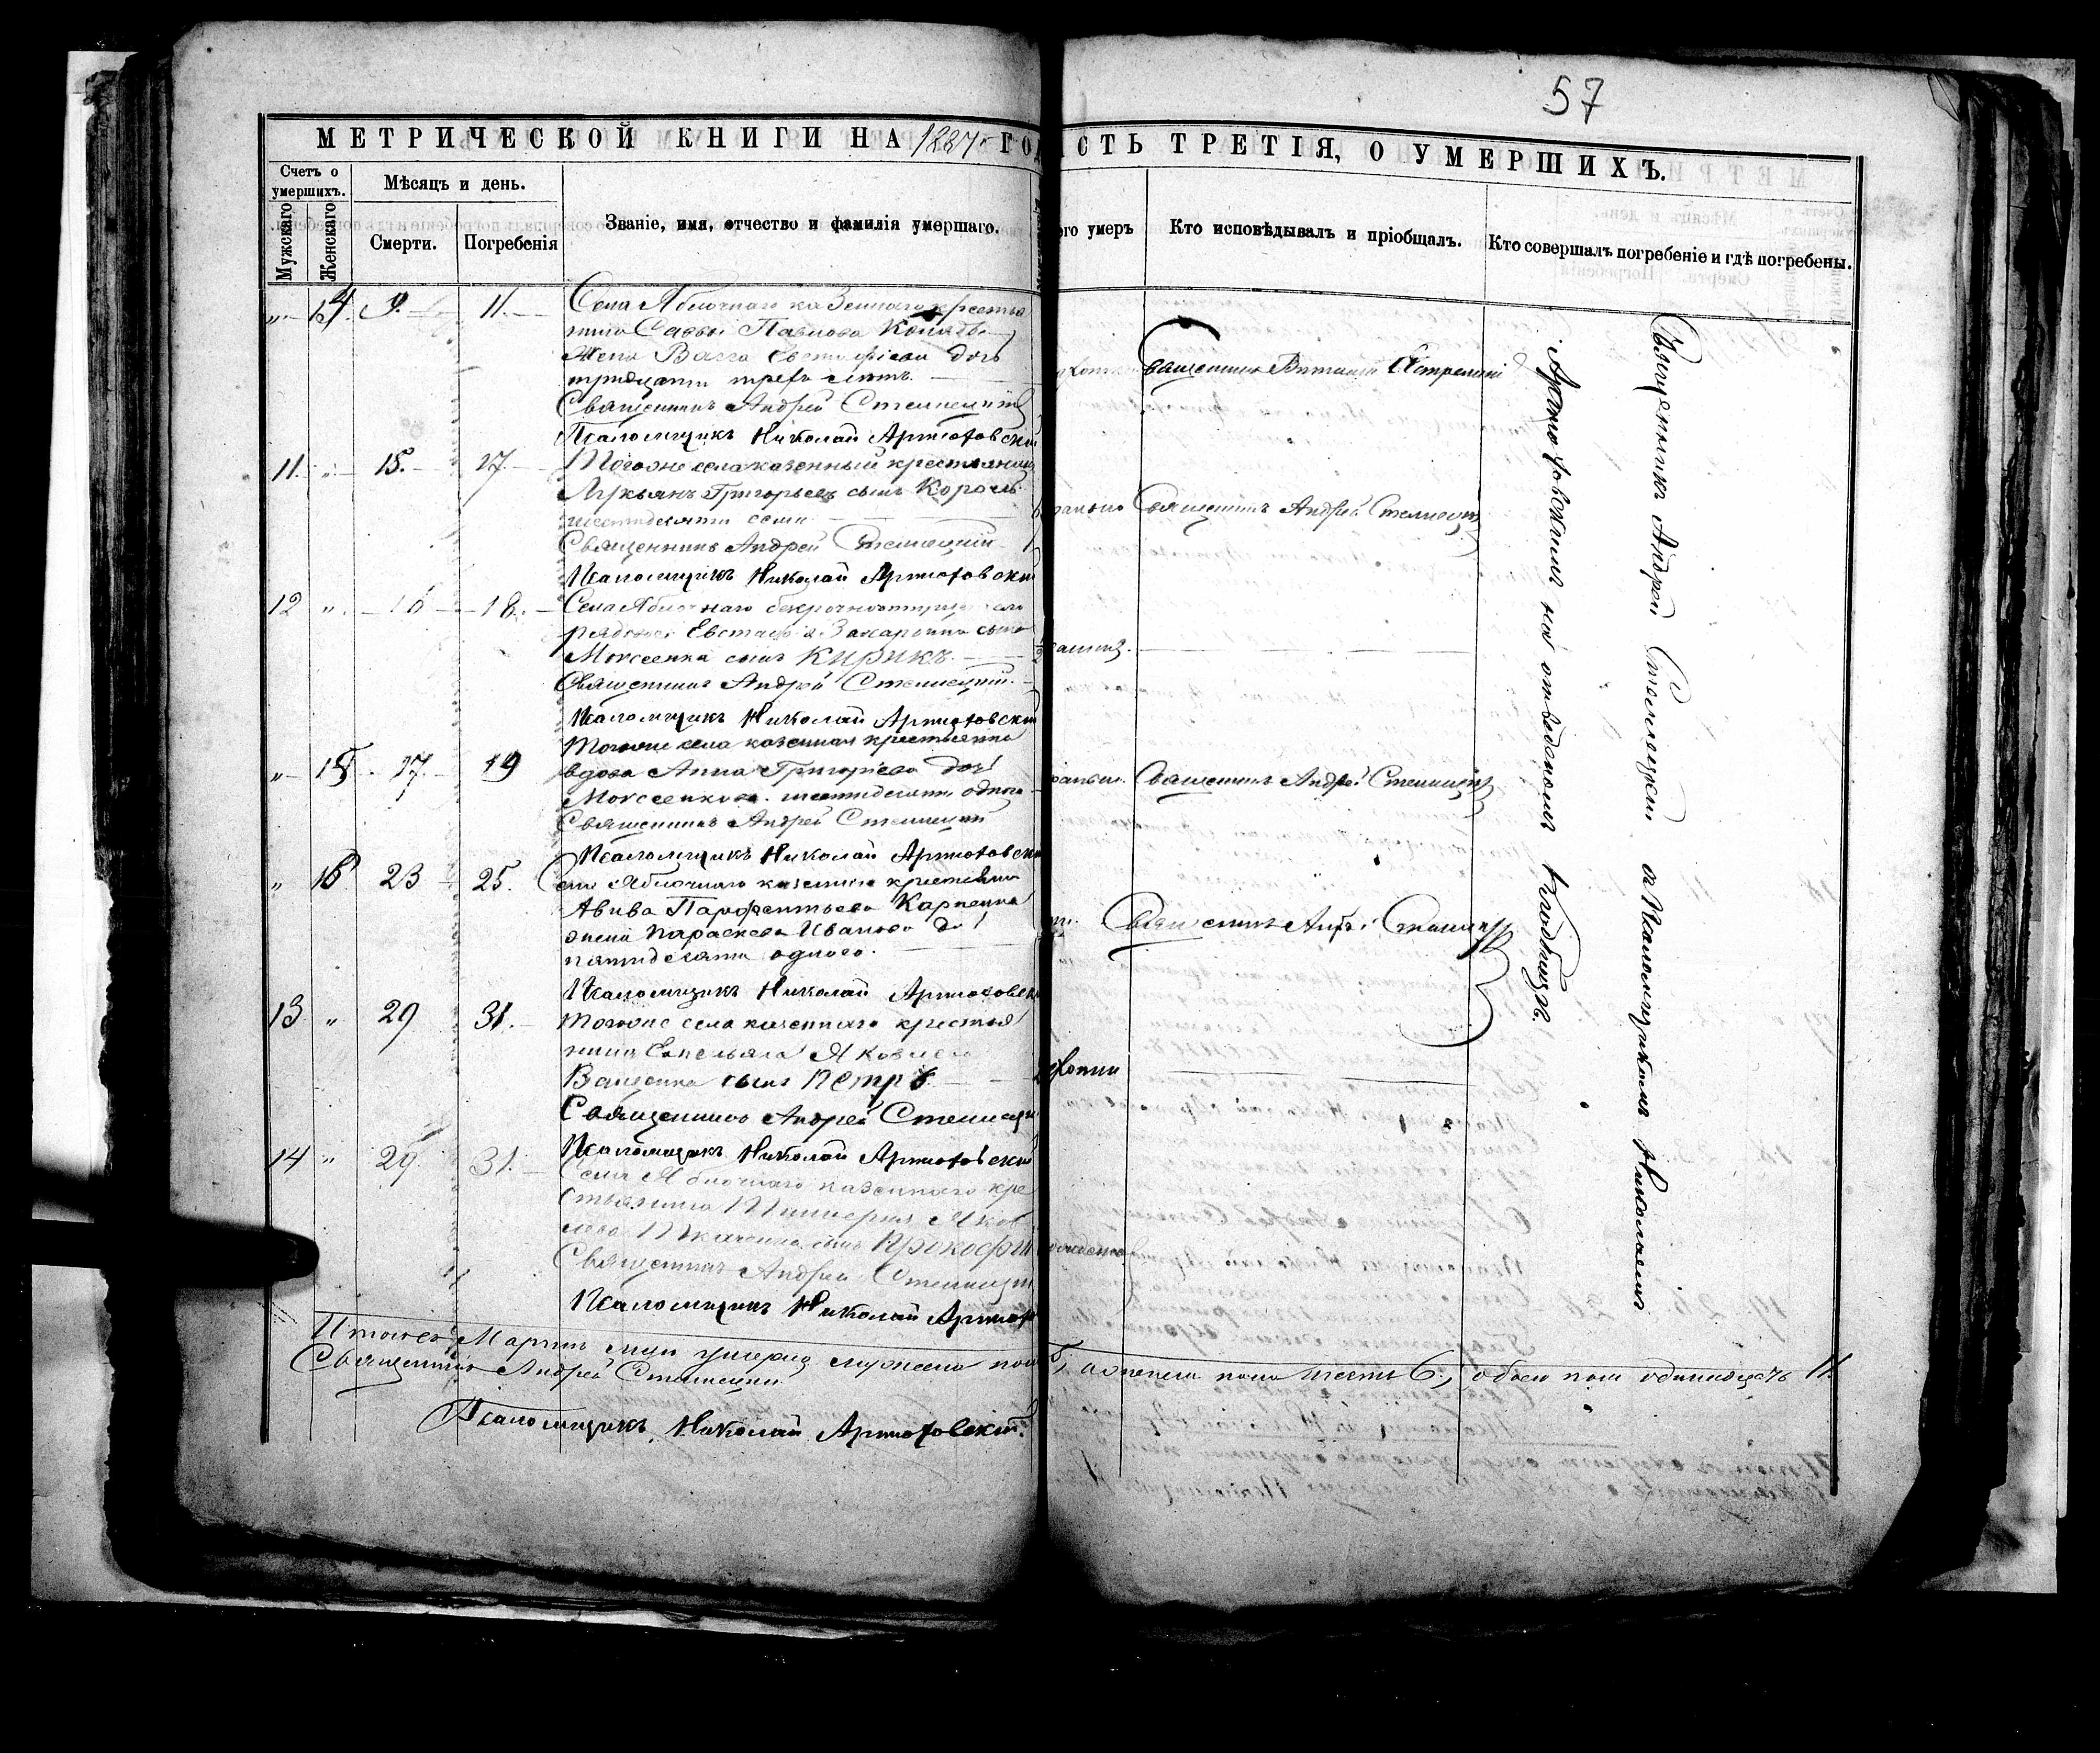 57
МЕТРИЧЕСКОЙ КНИГИ НА 1887 ГОД
СТЬ ТРЕТІЯ, О УМЕРШИХЪ.
Счетъ о умершихъ.
Мѣсяцъ и день.
Званіе, имя, отчество и фамилія умершаго.
его умеръ
Кто исповѣдывалъ и пріобщалъ.
Кто совершалъ погребеніе и гдѣ погребены.
Мужскаго
Женскаго
Смерти.
Погребенія
„ 14 9. 11.
Села Яблочнаго казеннаго крестья
нина Саввы Павлова
Жена Васса Евстафіева дочь
тридцати трехъ лѣтъ.
Священникъ Андрей Стеллецкій
Псаломщикъ Николай Артюховскій
Священникъ Виталий
11. „ 15. 17.
Тогоже села казенный крестьянинъ
Лукьянъ Григорьевъ сынъ Король
шестидесяти семи
Священникъ Андрей Стеллецкій
Псаломщикъ Николай Артюховскій
Священникъ Андрей Стеллецкій
12 „ 16 18.
Села Яблочнаго
рядоваго Евстафія Захаріина сына
Моисеенка сынъ Кирикъ.
Священникъ Андрей Стеллецкій.
Псаломщикъ Николай Артюховскій
„ 15 17. 19
Тогоже села казенная крестьянка
вдова Анна Григорьева дочь
Моисеенкова шестидесяти одного
Священникъ Андрей Стеллецкій
Псаломщикъ Николай Артюховскій
Священникъ Андрей Стеллецкій
„ 16 23 25.
Села Яблочнаго казеннаго крестьянина
Авива Парфентьева Карпенка
жена Параскева Иванова дочь
пятидесяти одного.
Псаломщикъ Николай Артюховскій
Священникъ Андрей Стеллецкій
13 „ 29 31.
Тогоже села казеннаго крестья
нина Емельяна Яковлева
Ващенка сынъ Петръ
Священникъ Андрей Стеллецкій
Псаломщикъ Николай Артюховскій
14 „ 29. 31.
Села Яблочнаго казеннаго кре
стьянина Яков
лева Ткаченка сынъ Прокофій
Священникъ Андрей Стеллецкій
Псаломщикъ Николай Артюхов
Священникъ Андрей Стеллецкій съ Псаломщикомъ Николаемъ
Артюховскимъ на отведенномъ кладбищѣ.
Итого въ Мартѣ м-цѣ умерло мужеска пола 5, а женска пола шесть 6, обоего пола одинадцать 11.
Священникъ Андрей Стеллецкій
Псаломщикъ Николай Артюховскій.